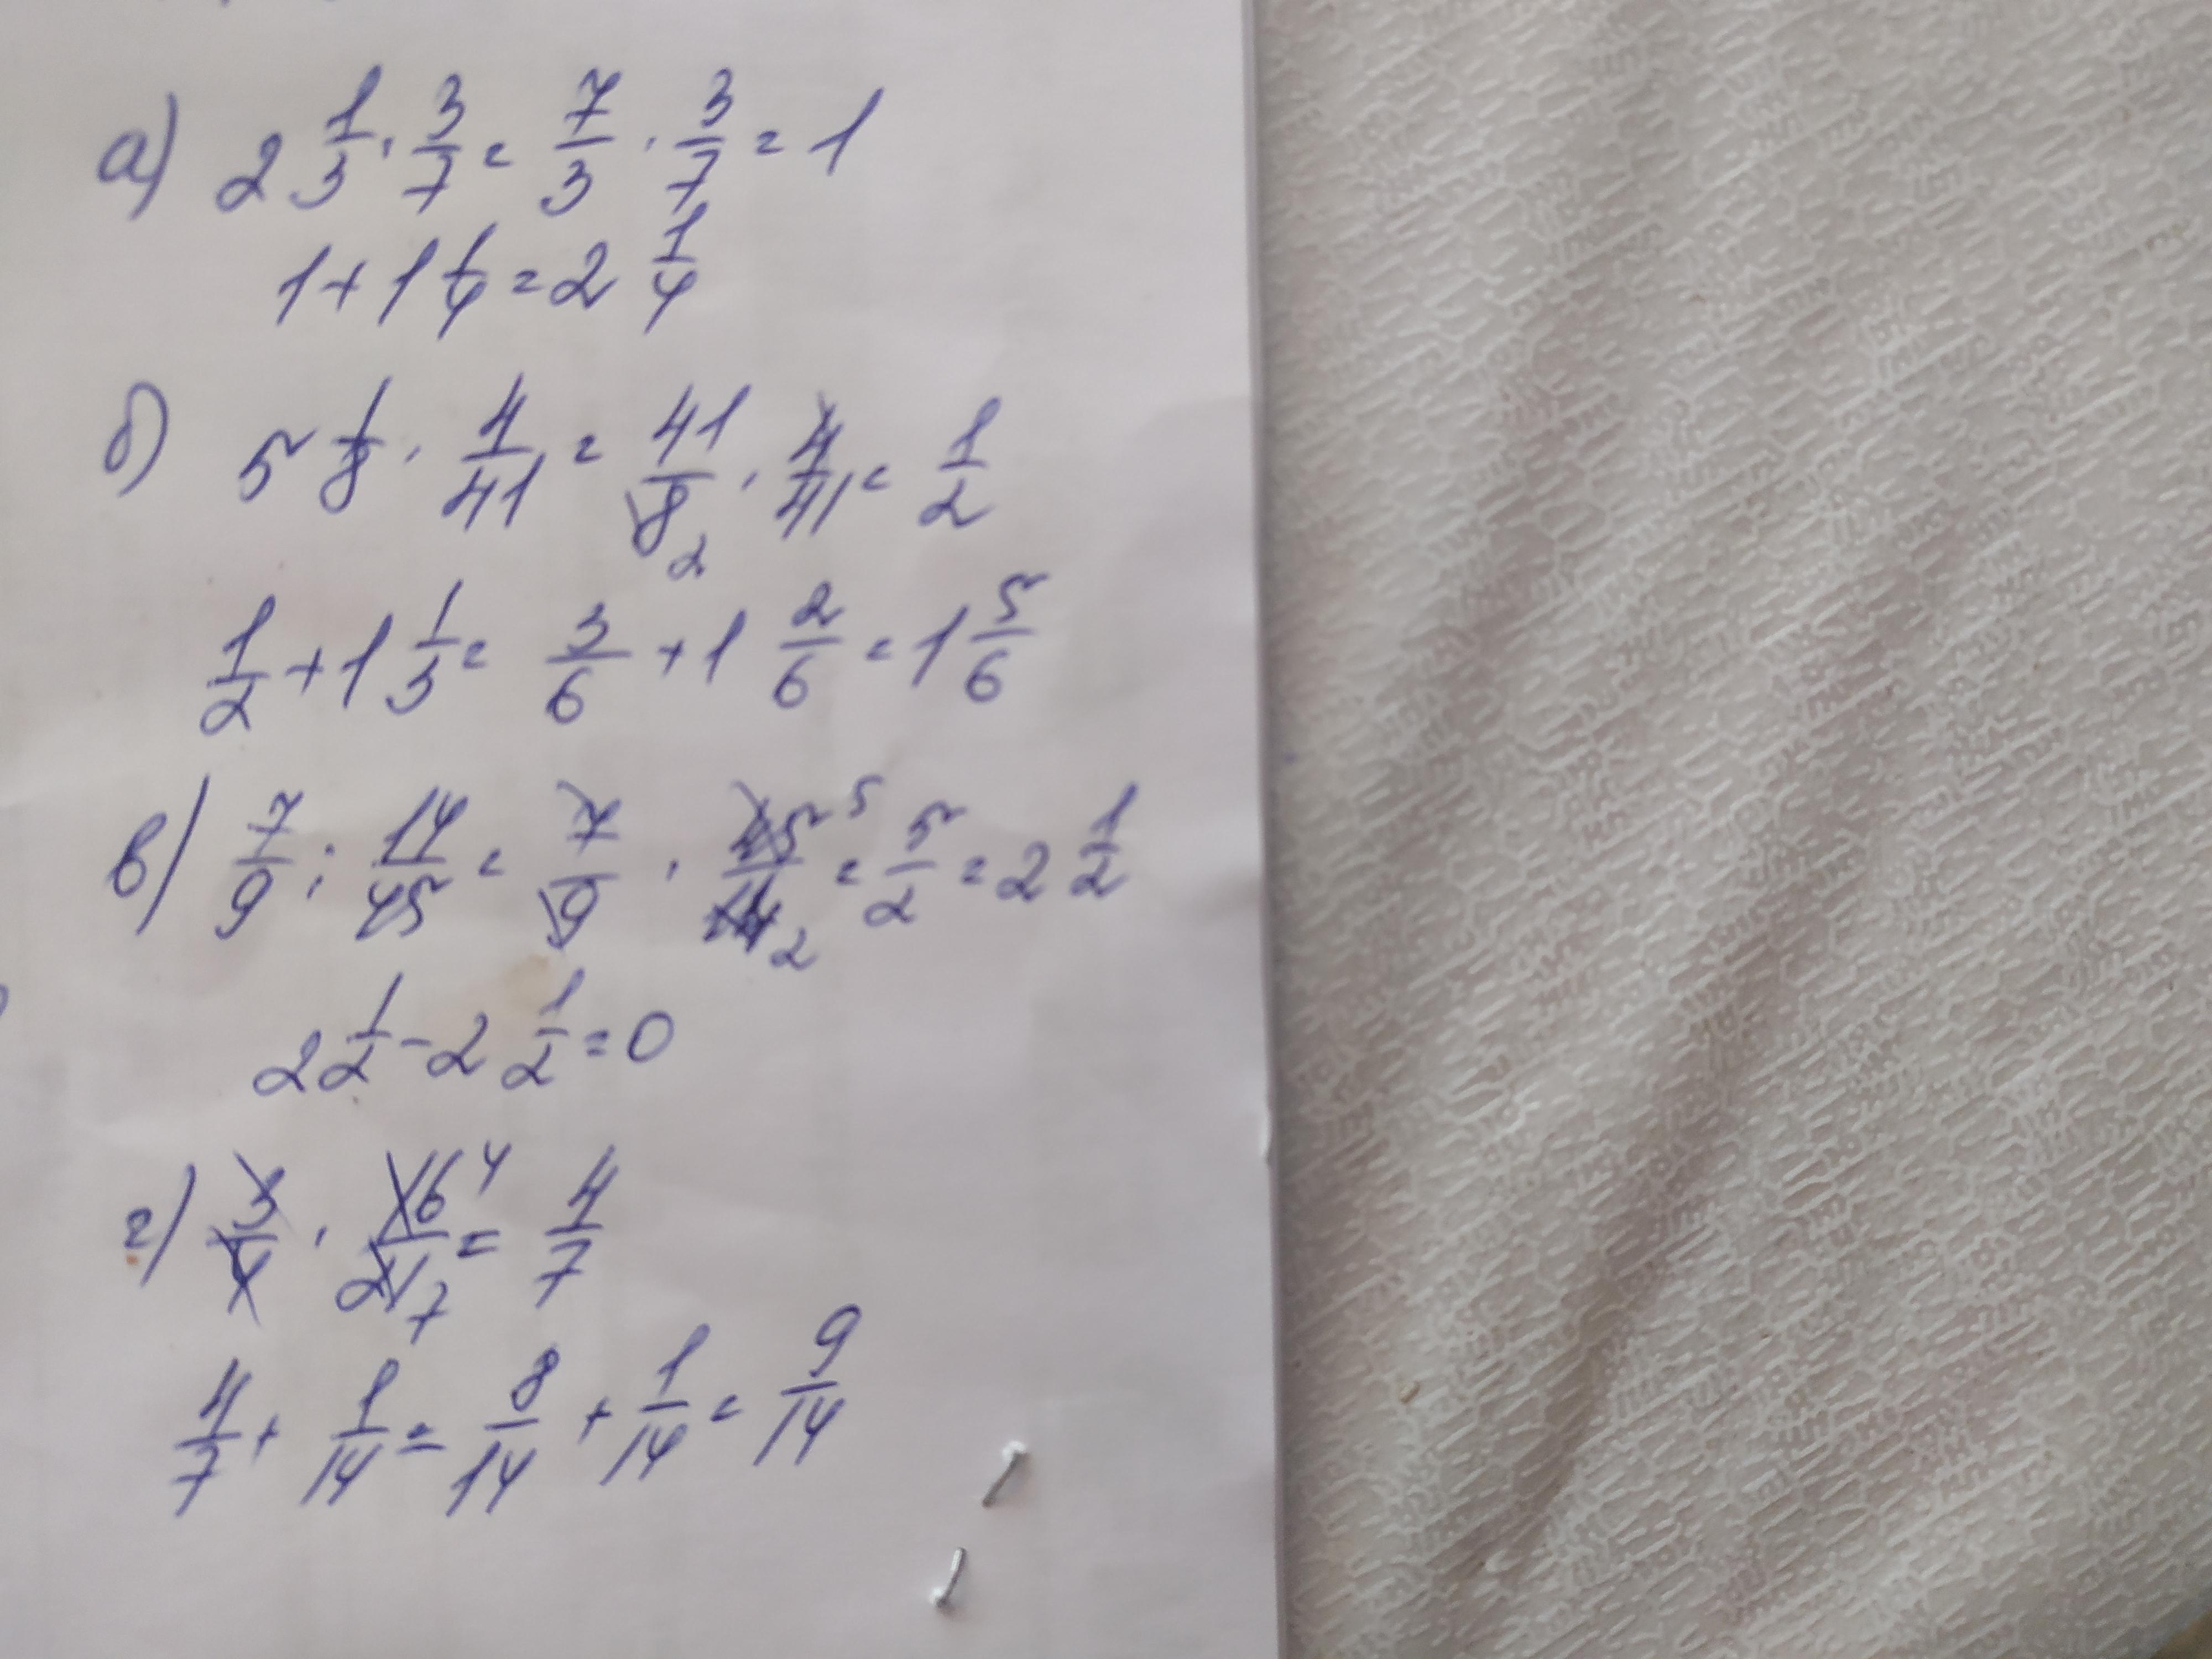 а) 2 1/3 · 3/7 = 7/3 · 3/7 = 1
1 + 1 1/4 = 2 1/4
б) 5 1/8 · 4/41 = 41/8 2 · 4/41 = 1/2
1/2 + 1 1/3 = 3/6 + 1 2/6 = 1 5/6
в) 7/9 : 14/45 = 7/9 · 45 5/14 2 = 5/2 = 2 1/2
2 1/2 - 2 1/2 = 0
г) 3/4 · 16 4/21 7 = 4/7
4/7 + 1/14 = 8/14 + 1/14 = 9/14